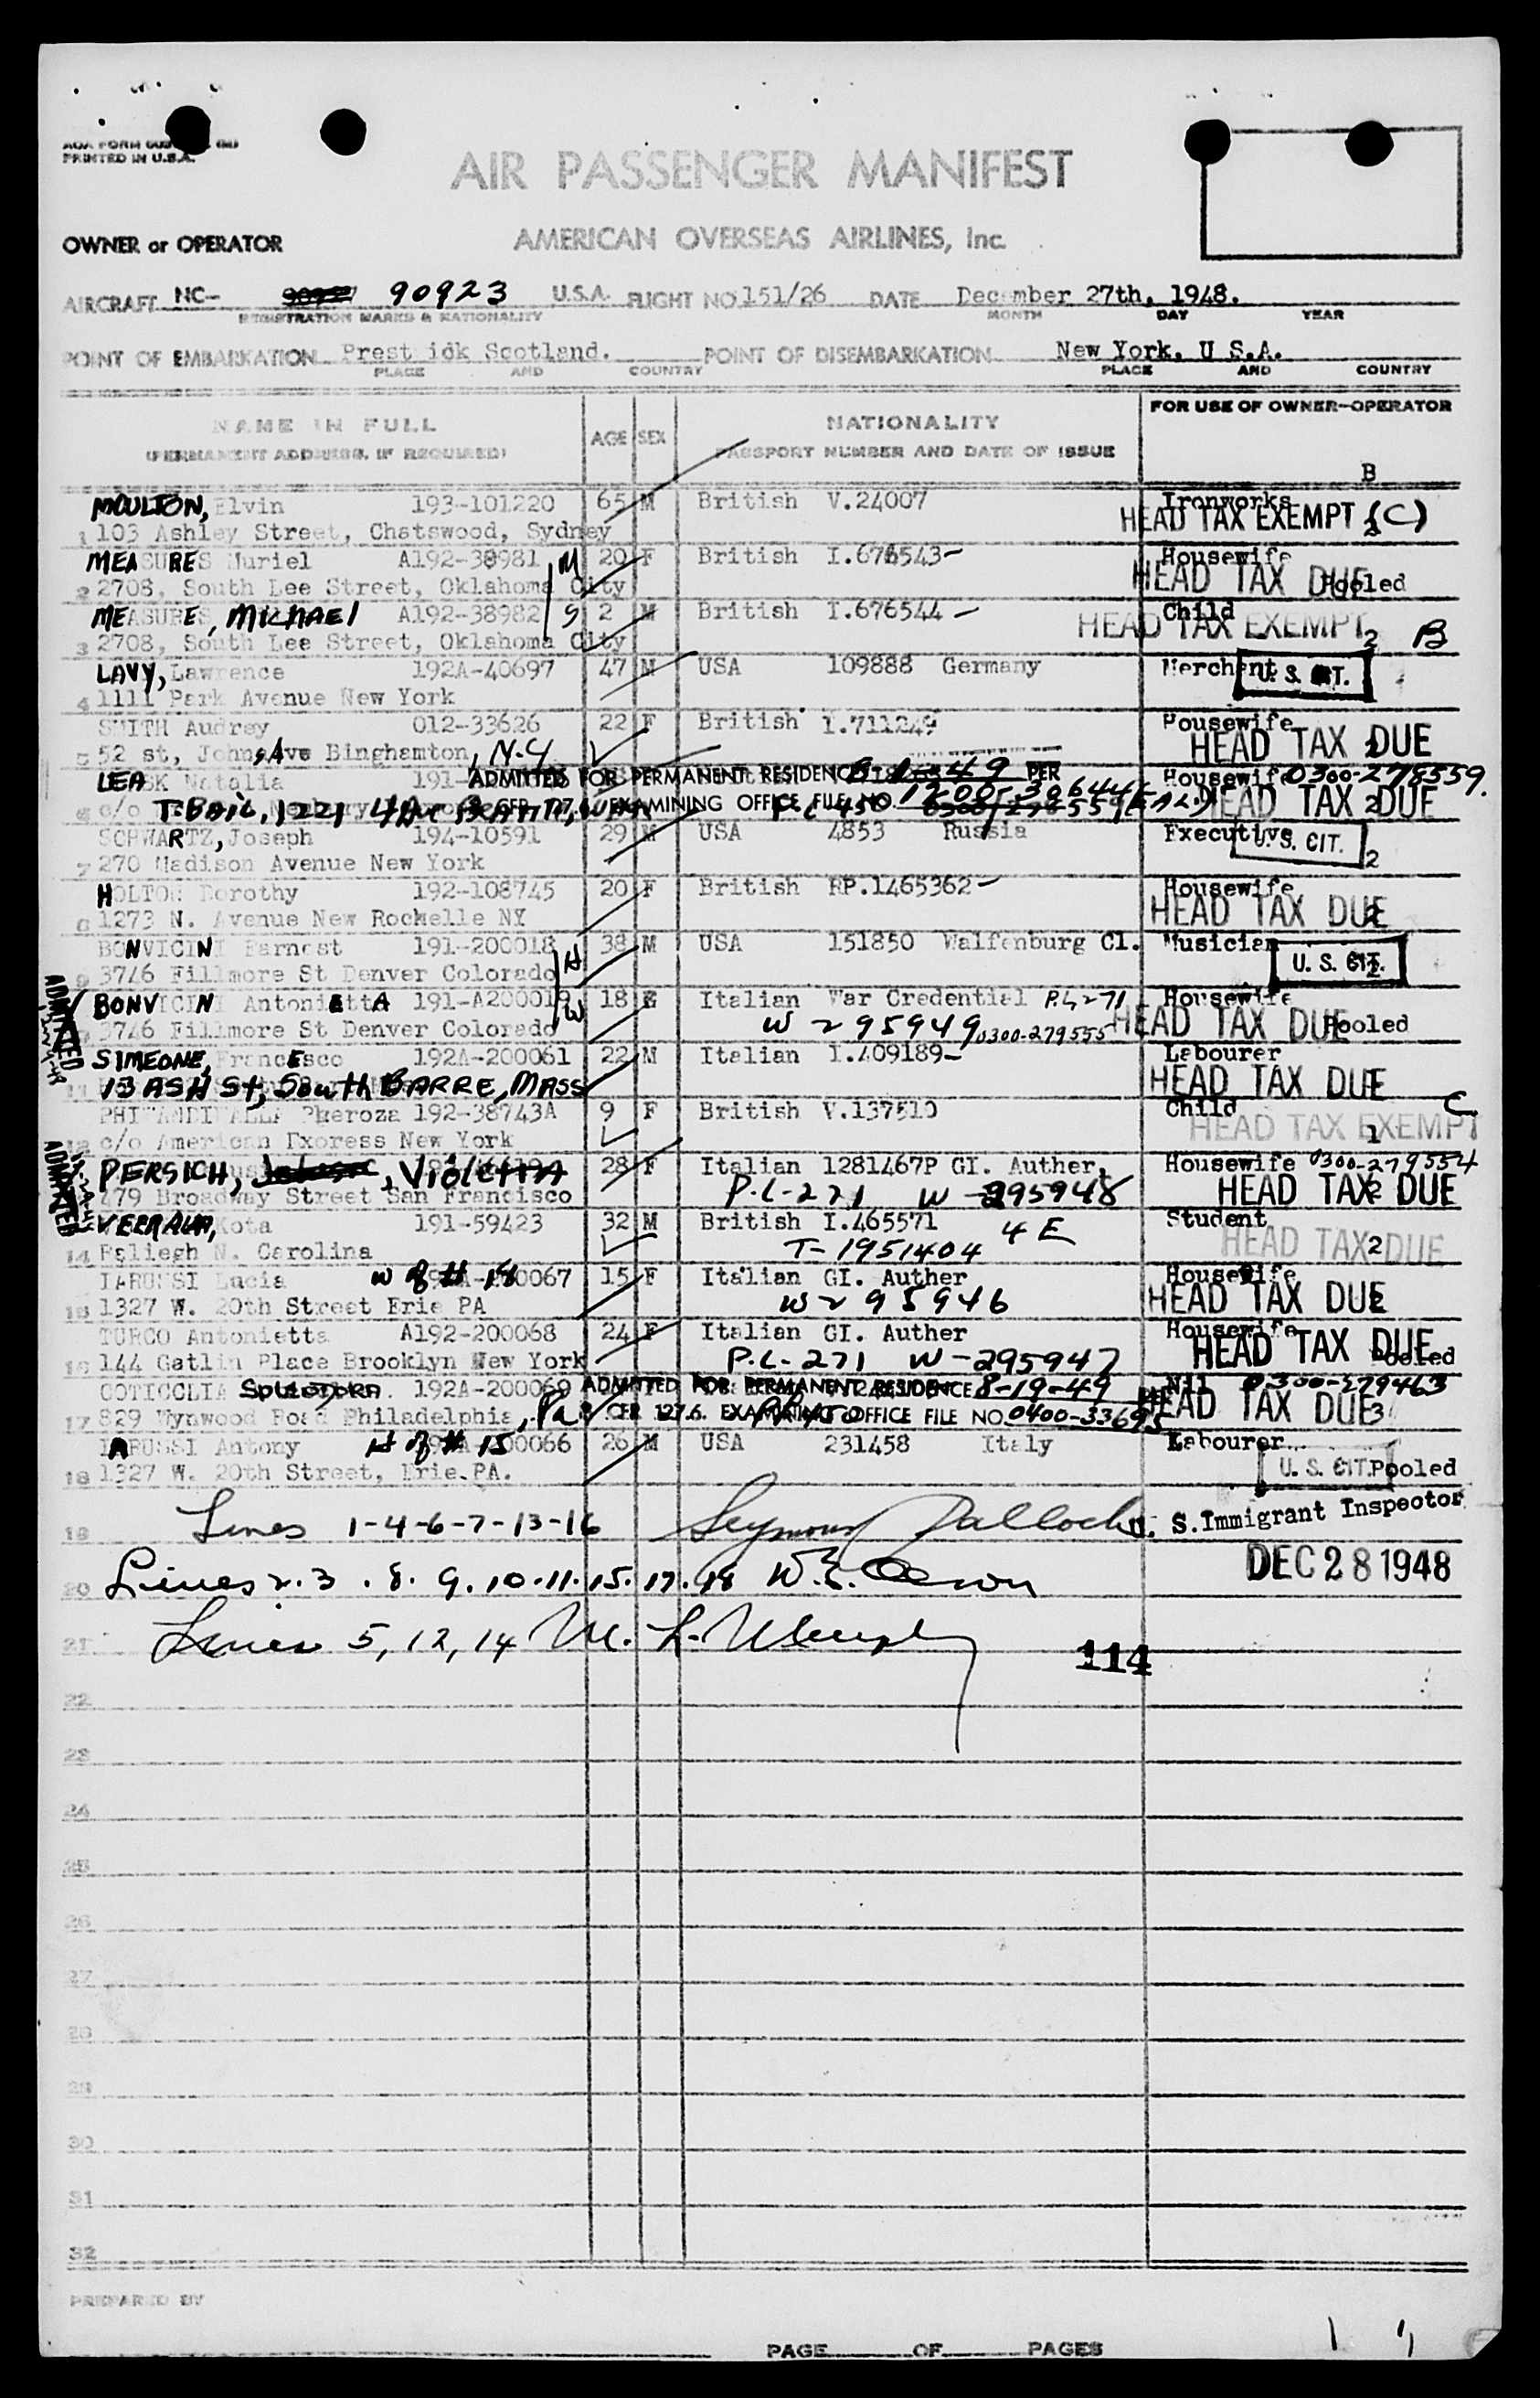 PRINTED IN U.S.A.
AIR PASSENGER MANIFEST
OWNER or OPERATOR AMERICAN OVERSEAS AIRLINES, Inc.
AIRCRAFT NC- 90923 U.S.A. FLIGHT NO. 151/26 DATE December 27th, 1948.
REGISTRATION MARKS & NATIONALITY MONTH DAY YEAR
POINT OF EMBARKATION Prest ick Scotland. POINT OF DISEMBARKATION New York, U S.A.
PLACE AND COUNTRY PLACE AND COUNTRY
NAME IN FULL AGE SEX NATIONALITY FOR USE OF OWNER-OPERATOR
(PERMANENT ADDRESS, IF REQUIRED) PASSPORT NUMBER AND DATE OF ISSUE
B
MOULTON, Elvin 193-101220 65 M British V.24007 Ironworks
HEAD TAX EXEMPT (C)
1 103 Ashley Street, Chatswood, Sydney
MEASURES Muriel A192-38981 M 20 F British I.676543- Housewife
2 2708, South Lee Street, Oklahoma City HEAD TAX DUE Pooled
MEASURES, MICHAEL A192-38982 S 2 M British I.676544- Child
3 2708, South Lee Street, Oklahoma City HEAD TAX EXEMPT 2 B
LAVY, Lawrence 192A-40697 47 M USA 109888 Germany Merchant U. S. CIT.
4 1111 Park Avenue New York
SMITH Audrey 012-33626 22 F British I.711249 Housewife
5 52 st, Johns Ave Binghamton, N.Y HEAD TAX DUE
Natalia 191- ADMITTED FOR PERMANENT RESIDENCE PER Housewife 0300-278559.
6 c/o 1221 8 CFR 127.6. EXAMINING OFFICE FILE NO. HEAD TAX DUE 2
SCHWARTZ, Joseph 194-10591 29 M USA 4853 Russia Executive U. S. CIT.
7 270 Madison Avenue New York 2
HOLTON Dorothy 192-108745 20 F British RP.1465362- Housewife
8 1273 N. Avenue New Rochelle NY HEAD TAX DUE
BONVICINI Earnest 191-200018 H 38 M USA 151850 Walfenburg Cl. Musician
9 3746 Fillmore St Denver Colorado U. S. CIT.
BONVICINI AntoniettA 191-A200019 W 18 F Italian War Credential P.L-271 Housewife
3746 Fillmore St Denver Colorado W 295949 0300-279555 HEAD TAX DUE Pooled
ADMITTED
SIMEONE, Francesco 192A-200061 22 M Italian I.409189- Labourer
11 13 ASH St, South BARRE, MASS HEAD TAX DUE
Pheroza 192-38743A 9 F British V.137510 Child C
12 c/o American Express New York HEAD TAX EXEMPT 1
ADMITTED
PERSICH, Violetta 28 F Italian 1281467P GI. Auther, Housewife 0300-279554
479 Broadway Street San Francisco P.L-271 W-295948 HEAD TAX DUE 2
Kota 191-59423 32 M British I.465571 4 E Student
14 Raliegh N. Carolina T-1951404 HEAD TAX DUE 2
IARUSSI Lucia W of # 18 00067 15 F Italian GI. Auther Housewife
15 1327 W. 20th Street Erie PA W 295946 HEAD TAX DUE
TURCO Antonietta A192-200068 24 F Italian GI. Auther Housewife
16 144 Gatlin Place Brooklyn New York P.L-271 W-295947 HEAD TAX DUE Pooled
192A-200069 ADMITTED FOR PERMANENT RESIDENCE 8-19-49 PER Nil 0300-279463
17 829 Wynwood Road Philadelphia, Pa 8 CFR 127.6. EXAMINING OFFICE FILE NO. 0400-33695 HEAD TAX DUE 3
IARUSSI Antony H of # 15 00066 26 M USA 231458 Italy Labourer
18 1327 W. 20th Street, Erie PA. U. S. CIT. Pooled
19 Lines 1-4-6-7-13-16 Seymour U. S. Immigrant Inspector
20 Lines 2.3.8.9.10.11.15.17.18 DEC 28 1948
21 Lines 5, 12, 14
114
22
23
24
25
26
27
28
29
30
31
32
PREPARED BY
PAGE OF PAGES